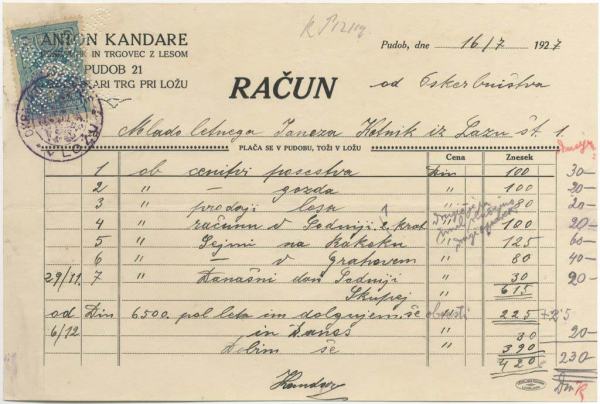 ANTON KANDARE
IN TRGOVEC Z LESOM
PUDOB 21
STARI TRG PRI LOŽU
Pudob, dne 16/7 1927
RAČUN
od Oskerbništva
Mladoletnega Janeza Kotnik iz Lazu št. 1.
PLAČA SE V PUDOBU, TOŽI V LOŽU
Cena Znesek
1 ob cenitvi posestva Din 100 30-
2 " - gozda " 100 20-
3 " prodaji lesa " 80 20-
4 " računu v Sodniji 2 krat " 100 20-
5 " Sejmi na Rakeku " 125 60-
6 " - v Grahovem " 80 40-
29/11. 7 " Današni dan Sodniji " 30 20-
Skupej 615
od Din 6500. pol leta im dolgujem še obresti " 225 +25
6/12 in Danes " 30 20-
Dobim še " 390 230
420
Kandare
Din